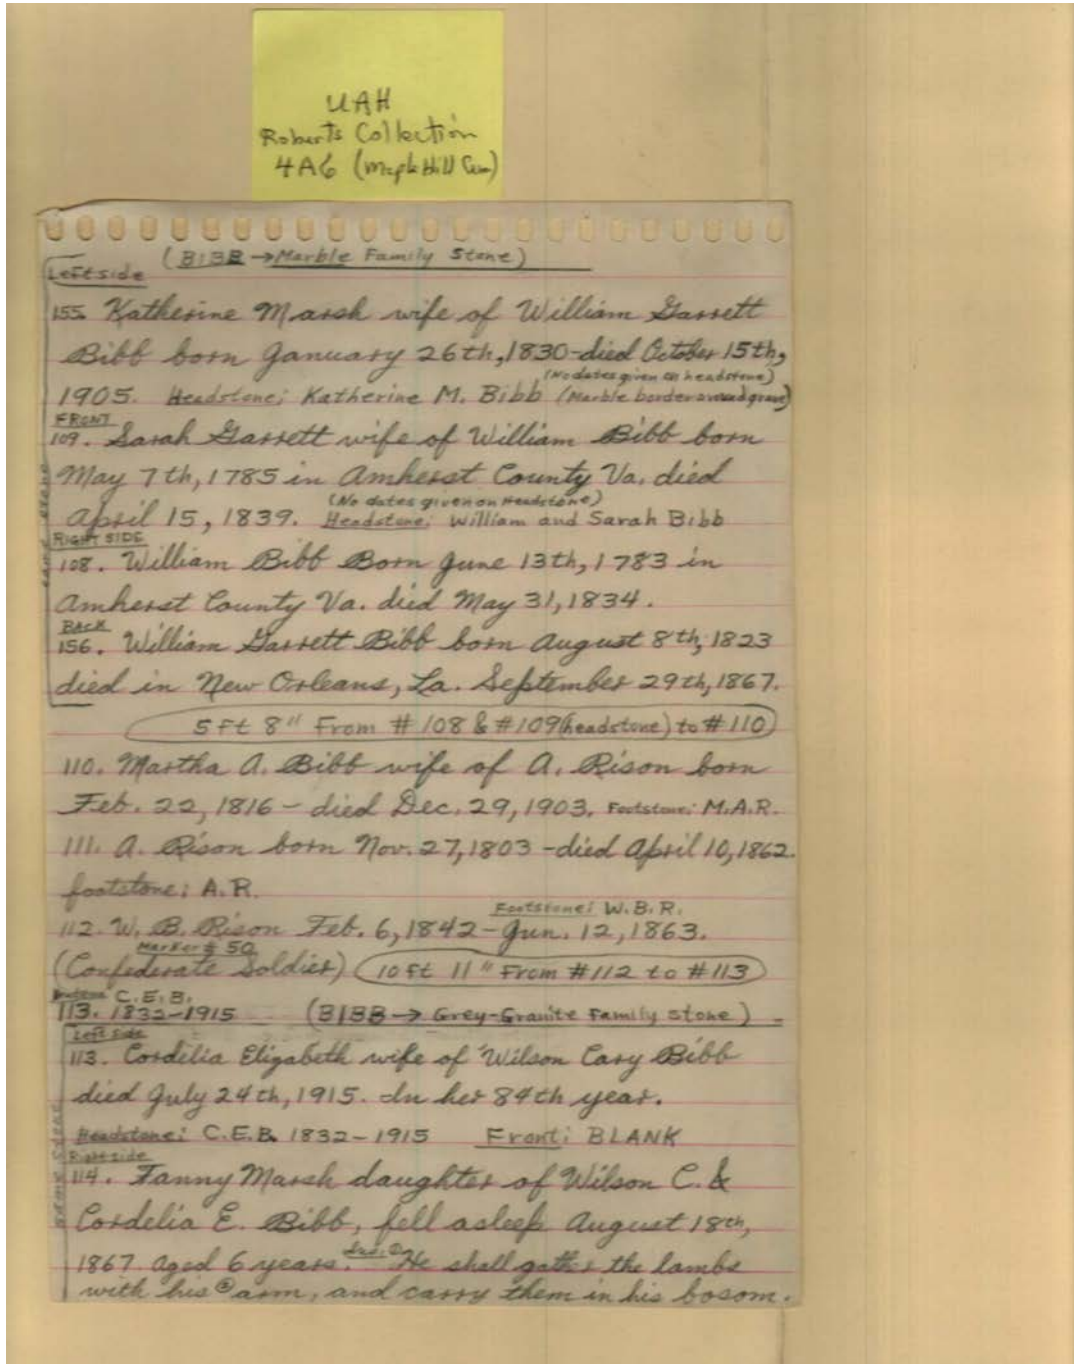 UAH
Roberts Collection
4A6 (Maple Hill Cem)
(BIBB → Marble Family Stone)
Left side
155. Katherine Marsh wife of William Garrett
Bibb born January 26th, 1830-died October 15th,
(No dates given on headstone)
1905. Headstone: Katherine M. Bibb (Marble border around grave)
FRONT
109. Sarah Garrett wife of William Bibb born
May 7th, 1785 in Amherst County Va. died
(No dates given on Headstone)
April 15, 1839. Headstone: William and Sarah Bibb
RIGHT SIDE
108. William Bibb Born June 13th, 1783 in
Amherst County Va. died May 31, 1834.
BACK
156. William Garrett Bibb born August 8th, 1823
died in New Orleans, La. September 29th, 1867.
5 ft 8" From #108 & #109 (headstone) to #110
110. Martha A. Bibb wife of A. Rison born
Feb. 22, 1816 - died Dec. 29, 1903. Footstone: M.A.R.
111. A. Rison born Nov. 27, 1803 - died April 10, 1862.
footstone: A.R.
Footstone: W.B.R.
112. W. B. Rison Feb. 6, 1842 - Jun. 12, 1863.
Marker # 50
(Confederate Soldier) (10 ft 11" From #112 to #113)
C.E.B.
113. 1832-1915 (BIBB → Grey-Granite Family Stone)
Left side
113. Cordelia Elizabeth wife of Wilson Cary Bibb
died July 24th, 1915. In her 84th year.
Headstone: C.E.B. 1832-1915 Front: BLANK
Right side
114. Fanny Marsh daughter of Wilson C. &
Cordelia E. Bibb, fell asleep August 18th,
1867 aged 6 years. Ins: ① He shall gather the lambs
with his ② arm, and carry them in his bosom.
same stone
same stone